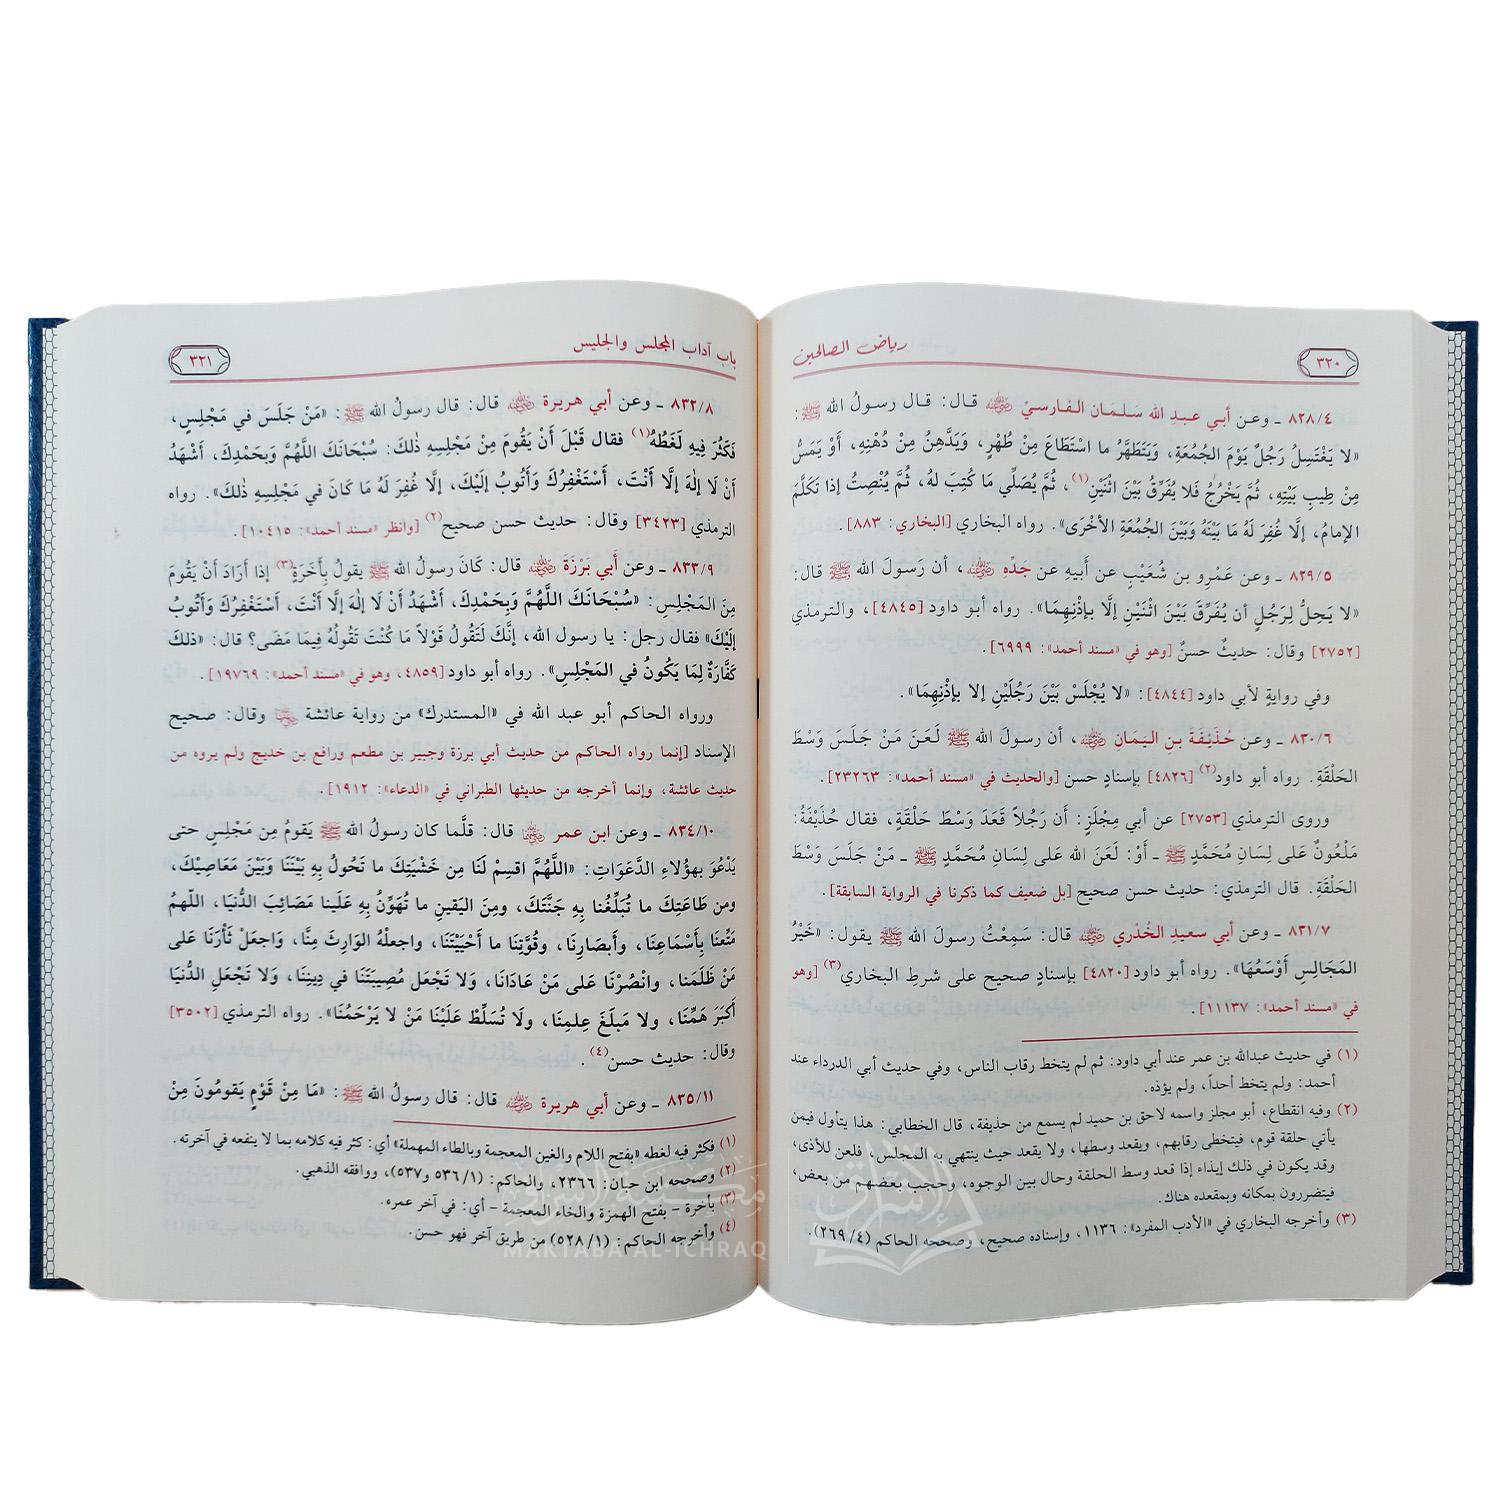 رياض الصالحين
٣٢٠
٨٢٨/٤ ـ وعن أبي عبد الله سَلمَان الفارسيِّ رضي الله عنه قال: قال رسولُ الله ﷺ:
«لا يَغْتَسِلُ رَجُلٌ يَوْمَ الجُمُعَةِ، وَيَتَطَهَّرُ ما اسْتَطَاعَ مِنْ طُهْرٍ، وَيَدَّهِنُ مِنْ دُهْنِهِ، أَوْ يَمَسُّ
مِنْ طِيبِ بَيْتِهِ، ثُمَّ يَخْرُجُ فَلا يُفَرِّقُ بَيْنَ اثْنَيْنِ(١)، ثُمَّ يُصَلِّي مَا كُتِبَ لهُ، ثُمَّ يُنْصِتُ إذا تَكَلَّمَ
الإمامُ، إلَّا غُفِرَ لَهُ مَا بَيْنَهُ وَبَيْنَ الجُمُعَةِ الأخْرَى». رواه البخاري [البخاري: ٨٨٣].
٨٢٩/٥ ـ وعن عَمْرِو بن شُعَيْبٍ عن أبيه عن جَدِّه رضي الله عنه، أن رَسولَ الله ﷺ قال:
«لا يَحِلُّ لِرَجُلٍ أن يُفَرِّقَ بَيْنَ اثْنَيْنِ إلَّا بإذْنِهِمَا». رواه أبو داود [٤٨٤٥]، والترمذي
[٢٧٥٢] وقال: حديثٌ حسنٌ [وهو في «مسند أحمد»: ٦٩٩٩].
وفي روايةٍ لأبي داود [٤٨٤٤]: «لا يُجْلَسْ بَيْنَ رَجُلَيْنِ إلا بإذْنِهِمَا».
٨٣٠/٦ ـ وعن حُذَيْفَةَ بن اليَمَانِ رضي الله عنه، أن رسولَ الله ﷺ لَعَنَ مَنْ جَلَسَ وَسْطَ
الحَلْقَةِ. رواه أبو داود(٢) [٤٨٢٦] بإسنادٍ حسن [والحديث في «مسند أحمد»: ٢٣٢٦٣].
وروى الترمذي [٢٧٥٣] عن أبي مِجْلَزٍ: أن رَجُلاً قَعَدَ وَسْطَ حَلْقَةٍ، فقال حُذَيْفَةُ:
مَلْعُونٌ عَلى لِسَانِ مُحَمَّدٍ ﷺ ـ أَوْ: لَعَنَ الله عَلى لِسَانِ مُحَمَّدٍ ﷺ ـ مَنْ جَلَسَ وَسْطَ
الحَلْقَةِ. قال الترمذي: حديث حسن صحيح [بل ضعيف كما ذكرنا في الرواية السابقة].
٨٣١/٧ ـ وعن أبي سعيدِ الخُدْري رضي الله عنه قال: سَمِعْتُ رسولَ الله ﷺ يقول: «خَيْرُ
المَجَالِسِ أَوْسَعُهَا». رواه أبو داود [٤٨٢٠] بإسنادٍ صحيح على شرطِ البخاري(٣) [وهو
في «مسند أحمد»: ١١١٣٧].
(١) في حديث عبدالله بن عمر عند أبي داود: ثم لم يتخط رقاب الناس، وفي حديث أبي الدرداء عند
أحمد: ولم يتخط أحداً، ولم يؤذه.
(٢) وفيه انقطاع، أبو مجلز واسمه لاحق بن حميد لم يسمع من حذيفة، قال الخطابي: هذا يتأول فيمن
يأتي حلقة قوم، فيتخطى رقابهم، ويقعد وسطها، ولا يقعد حيث ينتهي به المجلس، فلعن للأذى،
وقد يكون في ذلك إيذاء إذا قعد وسط الحلقة وحال بين الوجوه، وحجب بعضهم من بعض،
فيتضررون بمكانه وبمقعده هناك.
(٣) وأخرجه البخاري في «الأدب المفرد»: ١١٣٦، وإسناده صحيح، وصححه الحاكم (٢٦٩/٤).
باب آداب المجلس والجليس
٣٢١
٨٣٢/٨ ـ وعن أبي هريرة رضي الله عنه قال: قال رسولُ الله ﷺ: «مَنْ جَلَسَ في مَجْلِسٍ،
فَكَثُرَ فِيهِ لَغَطُهُ(١) فقال قَبْلَ أَنْ يَقُومَ مِنْ مَجْلِسِهِ ذٰلكَ: سُبْحَانَكَ اللَّهُمَّ وَبِحَمْدِكَ، أَشْهَدُ
أَنْ لَا إِلٰهَ إلَّا أَنْتَ، أَسْتَغْفِرُكَ وَأَتُوبُ إلَيْكَ، إلَّا غُفِرَ لَهُ مَا كَانَ في مَجْلِسِهِ ذلكَ». رواه
الترمذي [٣٤٢٣] وقال: حديث حسن صحيح(٢) [وانظر «مسند أحمد»: ١٠٤١٥].
٨٣٣/٩ ـ وعن أَبي بَرْزَةَ رضي الله عنه قال: كَانَ رسولُ الله ﷺ يقولُ بِأَخَرَةٍ(٣) إذا أرَادَ أَنْ يَقُومَ
مِنَ المَجْلِسِ: «سُبْحَانَكَ اللَّهُمَّ وَبِحَمْدِكَ، أَشْهَدُ أَنْ لَا إِلٰهَ إلَّا أَنْتَ، أَسْتَغْفِرُكَ وَأَتُوبُ
إلَيْكَ» فقال رجل: يا رسول الله، إنَّكَ لَتَقُولُ قَوْلاً مَا كُنْتَ تَقُولُهُ فِيمَا مَضَى؟ قال: «ذلكَ
كَفَّارَةٌ لِمَا يَكُونُ في المَجْلِسِ». رواه أبو داود [٤٨٥٩، وهو في «مسند أحمد»: ١٩٧٦٩].
ورواه الحاكم أبو عبد الله في «المستدرك» من رواية عائشة رضي الله عنها وقال: صحيح
الإسناد [إنما رواه الحاكم من حديث أبي برزة وجبير بن مطعم ورافع بن خديج ولم يروه من
حديث عائشة، وإنما أخرجه من حديثها الطبراني في «الدعاء»: ١٩١٢].
٨٣٤/١٠ ـ وعن ابن عمر رضي الله عنهما قال: قلَّما كان رسولُ الله ﷺ يَقومُ مِن مَجْلِسٍ حتى
يَدْعُوَ بهؤُلاءِ الدَّعَوَاتِ: «اللَّهُمَّ اقسِمْ لَنَا مِن خَشْيَتِكَ ما تَحُولُ بِهِ بَيْنَنَا وَبَيْنَ مَعَاصِيْكَ،
ومن طَاعَتِكَ ما تُبَلِّغُنا بِهِ جَنَّتَكَ، ومِنَ اليَقينِ ما تُهَوِّنُ بِهِ عَلَينا مَصَائِبَ الدُّنيَا، اللَّهمَّ
مَتِّعنَا بِأَسْمَاعِنَا، وَأبصَارِنَا، وقُوَّتِنَا ما أَحْيَيْتَنَا، واجعلْهُ الوَارِثَ مِنَّا، وَاجعَلْ ثَأْرَنَا عَلى
مَنْ ظَلَمَنا، وانْصُرْنَا عَلى مَنْ عَادَانَا، وَلا تَجْعَل مُصِيبَتَنَا في دِينِنَا، وَلَا تَجْعَلِ الدُّنيَا
أَكبَرَ هَمِّنَا، ولا مَبلَغَ عِلمِنَا، ولَا تُسَلِّطْ عَلَيْنَا مَنْ لا يَرْحَمُنَا». رواه الترمذي [٣٥٠٢]
وقال: حديث حسن(٤).
٨٣٥/١١ ـ وعن أبي هريرة رضي الله عنه قال: قال رسولُ الله ﷺ: «مَا مِنْ قَوْمٍ يَقومُونَ مِنْ
(١) فكثر فيه لغطه «بفتح اللام والغين المعجمة وبالطاء المهملة» أي: كثر فيه كلامه بما لا ينفعه في آخرته.
(٢) وصححه ابن حبان: ٢٣٦٦، والحاكم: (٥٣٦/١ و٥٣٧)، ووافقه الذهبي.
(٣) بأخرة – بفتح الهمزة والخاء المعجمة – أي: في آخر عمره.
(٤) وأخرجه الحاكم: (٥٢٨/١) من طريق آخر فهو حسن.
مكتبة الإشراق
MAKTABA AL-ICHRAQ